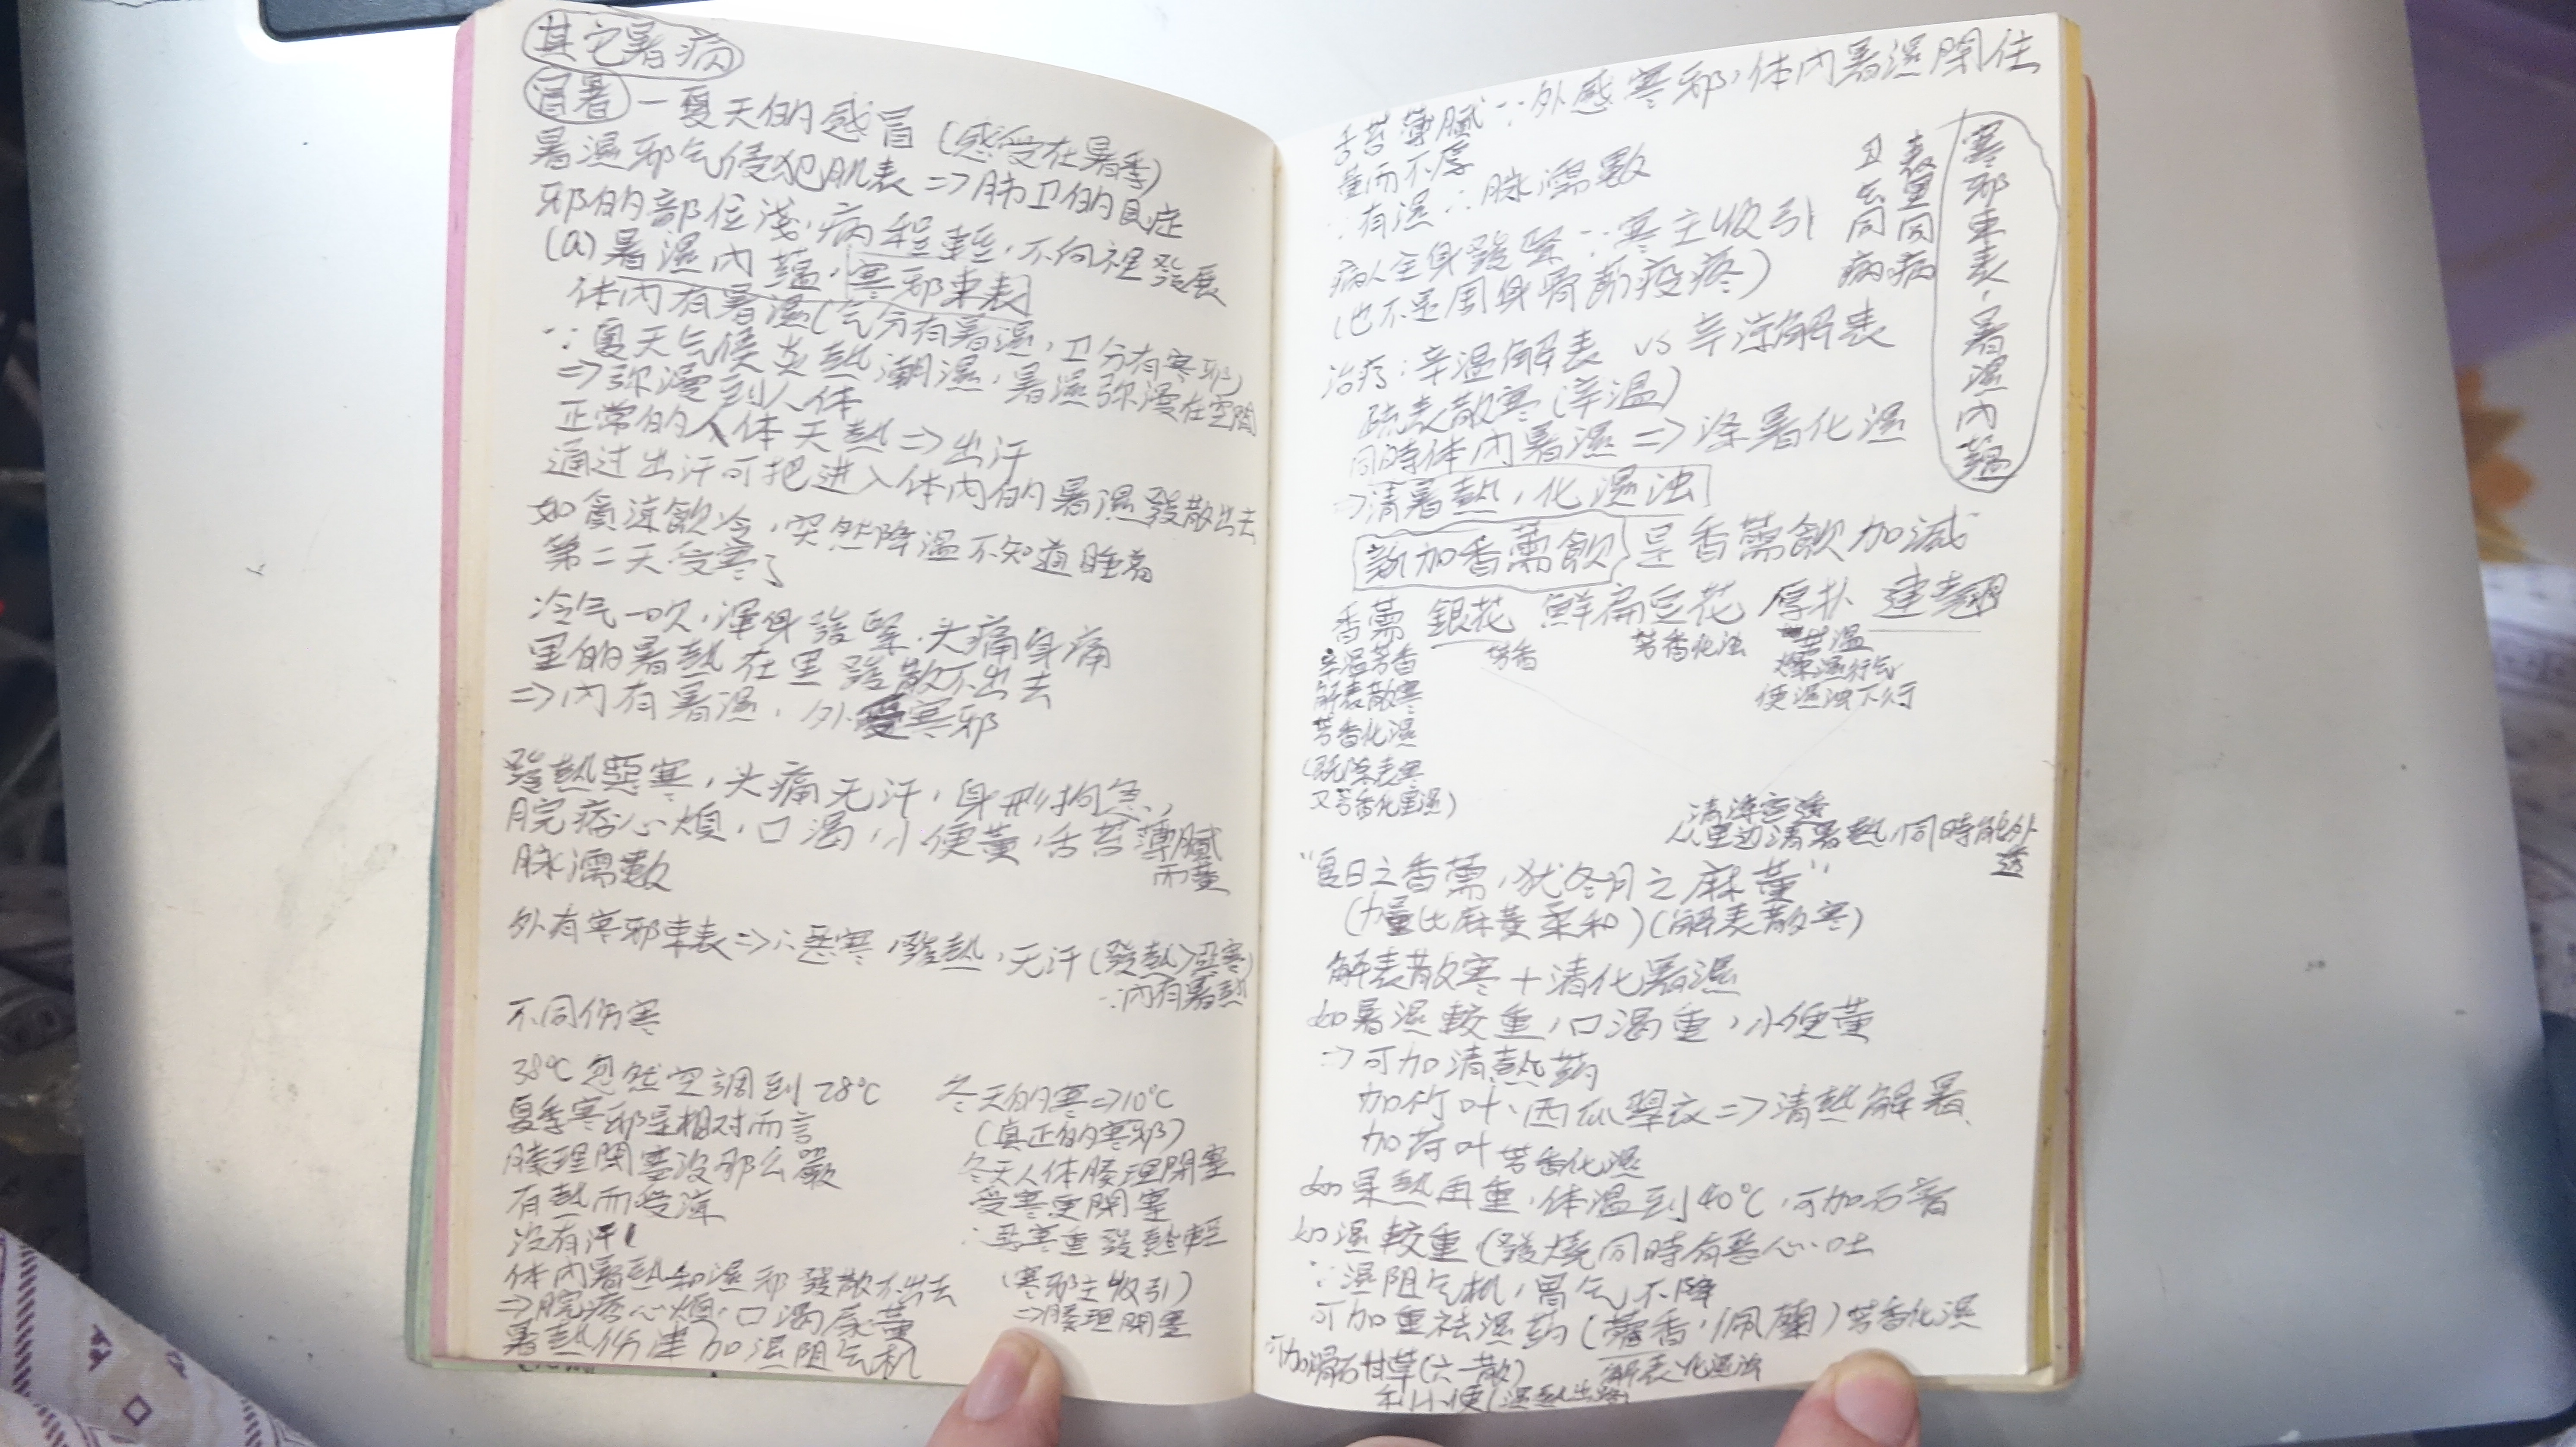 其它暑病
冒暑 — 夏天的感冒 (感受在暑季)
暑濕邪气侵犯肌表 => 肺卫的見症
邪的部位淺，病程輕，不向裡發展
(a) 暑濕內蘊，寒邪束表
体內有暑濕(气分有暑濕，卫分有寒邪)
∵夏天气候炎熱潮濕，暑濕弥漫在空間
=> 弥漫到人体
正常的人体天熱 => 出汗
通过出汗可把进入体內的暑濕發散出去
如貪涼飲冷，突然降溫不知道睡着
第二天受寒了
冷气一吹，渾身發緊，头痛身痛
里的暑熱在里發散不出去
=> 內有暑濕，外受寒邪
發熱惡寒，头痛无汗，身形拘急，
脘痞心煩，口渴，小便黃，舌苔薄膩
而黃
脉濡數
外有寒邪束表 => ∴惡寒，發熱，无汗 (發熱>惡寒)
∵內有暑熱
不同伤寒
38°C 忽然空調到 28°C
夏季寒邪是相对而言
腠理閉塞没那么嚴
有熱而受涼
没有汗
体內暑熱和濕邪發散不出去
=> 脘痞心煩，口渴尿黃
暑熱伤津加濕阻气机
冬天的寒 => 10°C
(真正的寒邪)
冬天人体腠理閉塞
受寒更閉塞
∴惡寒重發熱輕
(寒邪主收引)
=> 腠理閉塞
舌苔薄膩∵外感寒邪，体內暑濕閉住
黃而不厚
∵有濕∴脉濡數
病人全身發緊∵寒主收引
(也不是周身骨節疫疼)
卫气同病
表里同病
寒邪束表，暑濕內蘊
治疗：辛溫解表 vs 辛涼解表
疏表散寒 (辛溫)
同時体內暑濕 => 滌暑化濕
=> 清暑熱，化濕浊
新加香薷飲 是香薷飲加減
香薷 銀花 鮮扁豆花 厚朴 連翹
辛溫芳香
解表散寒
芳香化濕
(既除表寒
又芳香化里濕)
芳香
芳香化浊
苦溫
燥濕行气
使濕浊下行
清涼宣透
从里边清暑熱，同時能外
透
“夏日之香薷，犹冬月之麻黃”
(力量比麻黃柔和) (解表散寒)
解表散寒 + 清化暑濕
如暑濕較重，口渴重，小便黃
=> 可加清熱药
加竹叶、西瓜翠衣 => 清熱解暑、
加荷叶 芳香化濕
如果熱再重，体溫到40°C，可加石膏
如濕較重 (發燒同時有惡心吐
∵濕阻气机，胃气不降
可加重祛濕药 (藿香，佩蘭) 芳香化濕
解表化濕浊
可加滑石甘草(六一散)
利小便 (濕熱出路)